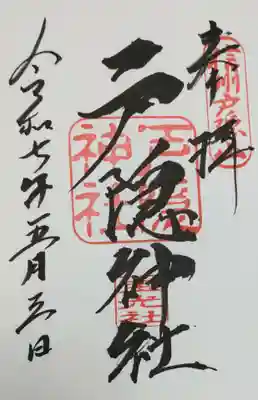 奉拝
信州戸隠山
戸隠神社
戸隠
神社
令和七年五月三日